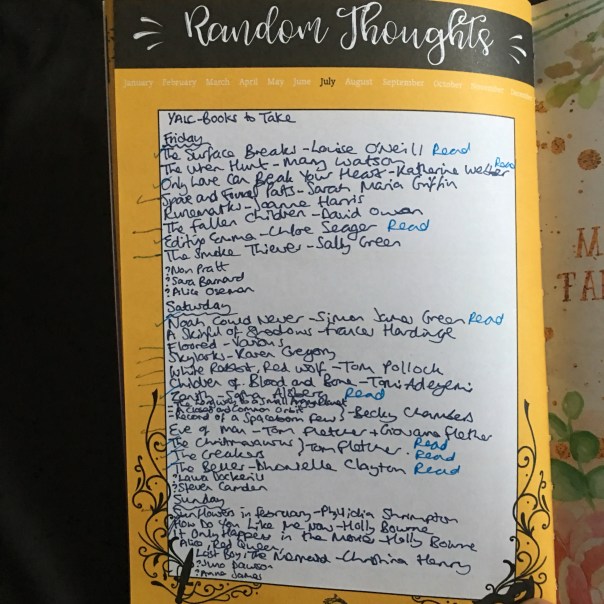 Random Thoughts
January February March April May June July August September October November December
YALC-Books to Take
Friday
The Surface Breaks - Louise O'Neill Read
The Wren Hunt - Mary Watson Read
Only Love Can Break Your Heart - Katherine Webber
Spare and Found Parts - Sarah Maria Griffin
Runemarks - Joanne Harris
The Fallen Children - David Owen
Editing Emma - Chloe Seager Read
The Smoke Thieves - Sally Green
?Non Pratt
?Sara Barnard
?Alice Oseman
Saturday
Noah Could Never - Simon James Green Read
A Skinful of Shadows - Frances Hardinge
Floored - Various
Skylarks - Karen Gregory
White Rabbit, Red Wolf - Tom Pollock
Children of Blood and Bone - Tomi Adeyemi
Zenith - Sasha Alsberg Read
- The Long Way to a Small Angry Planet
- A Closed and Common Orbit
- Record of a Spaceborn Few } - Becky Chambers
Eve of Man - Tom Fletcher + Giovanna Fletcher
The Christmasaurus } Tom Fletcher. Read
The Creakers Read
The Belles - Dhonielle Clayton Read
?Laura Dockerill
?Steven Camden
Sunday
Sunflowers in February - Phyllida Shrimpton
How Do You Like Me Now - Holly Bourne
It Only Happens in the Movies - Holly Bourne
Alice, Red Queen,
Lost Boy, The Mermaid - Christina Henry
?Juno Dawson
?Anna James
M
TA